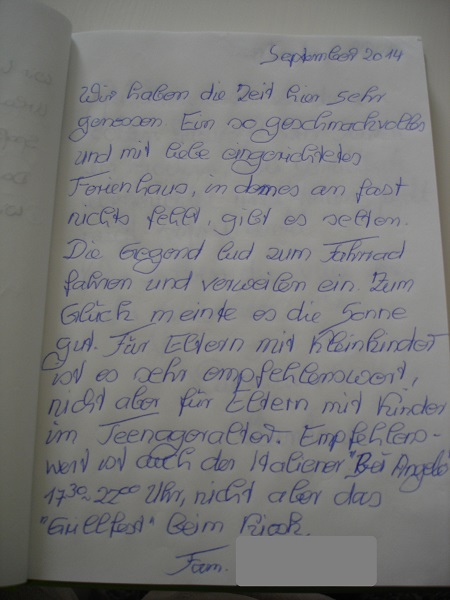 September 2014
Wir haben die Zeit hier sehr
genossen. Ein so geschmackvolles
und mit liebe eingerichtetes
Ferienhaus, in dem es an fast
nichts fehlt, gibt es selten.
Die Gegend lud zum Fahrrad
fahren und verweilen ein. Zum
Glück meinte es die Sonne
gut. Für Eltern mit Kleinkinder
ist es sehr empfehlenswert,
nicht aber für Eltern mit Kinder
im Teenageralter. Empfehlens-
wert ist auch der Italiener "Bei Angelo"
17³⁰-22⁰⁰ Uhr, nicht aber das
"Grillfest" beim
Fam.